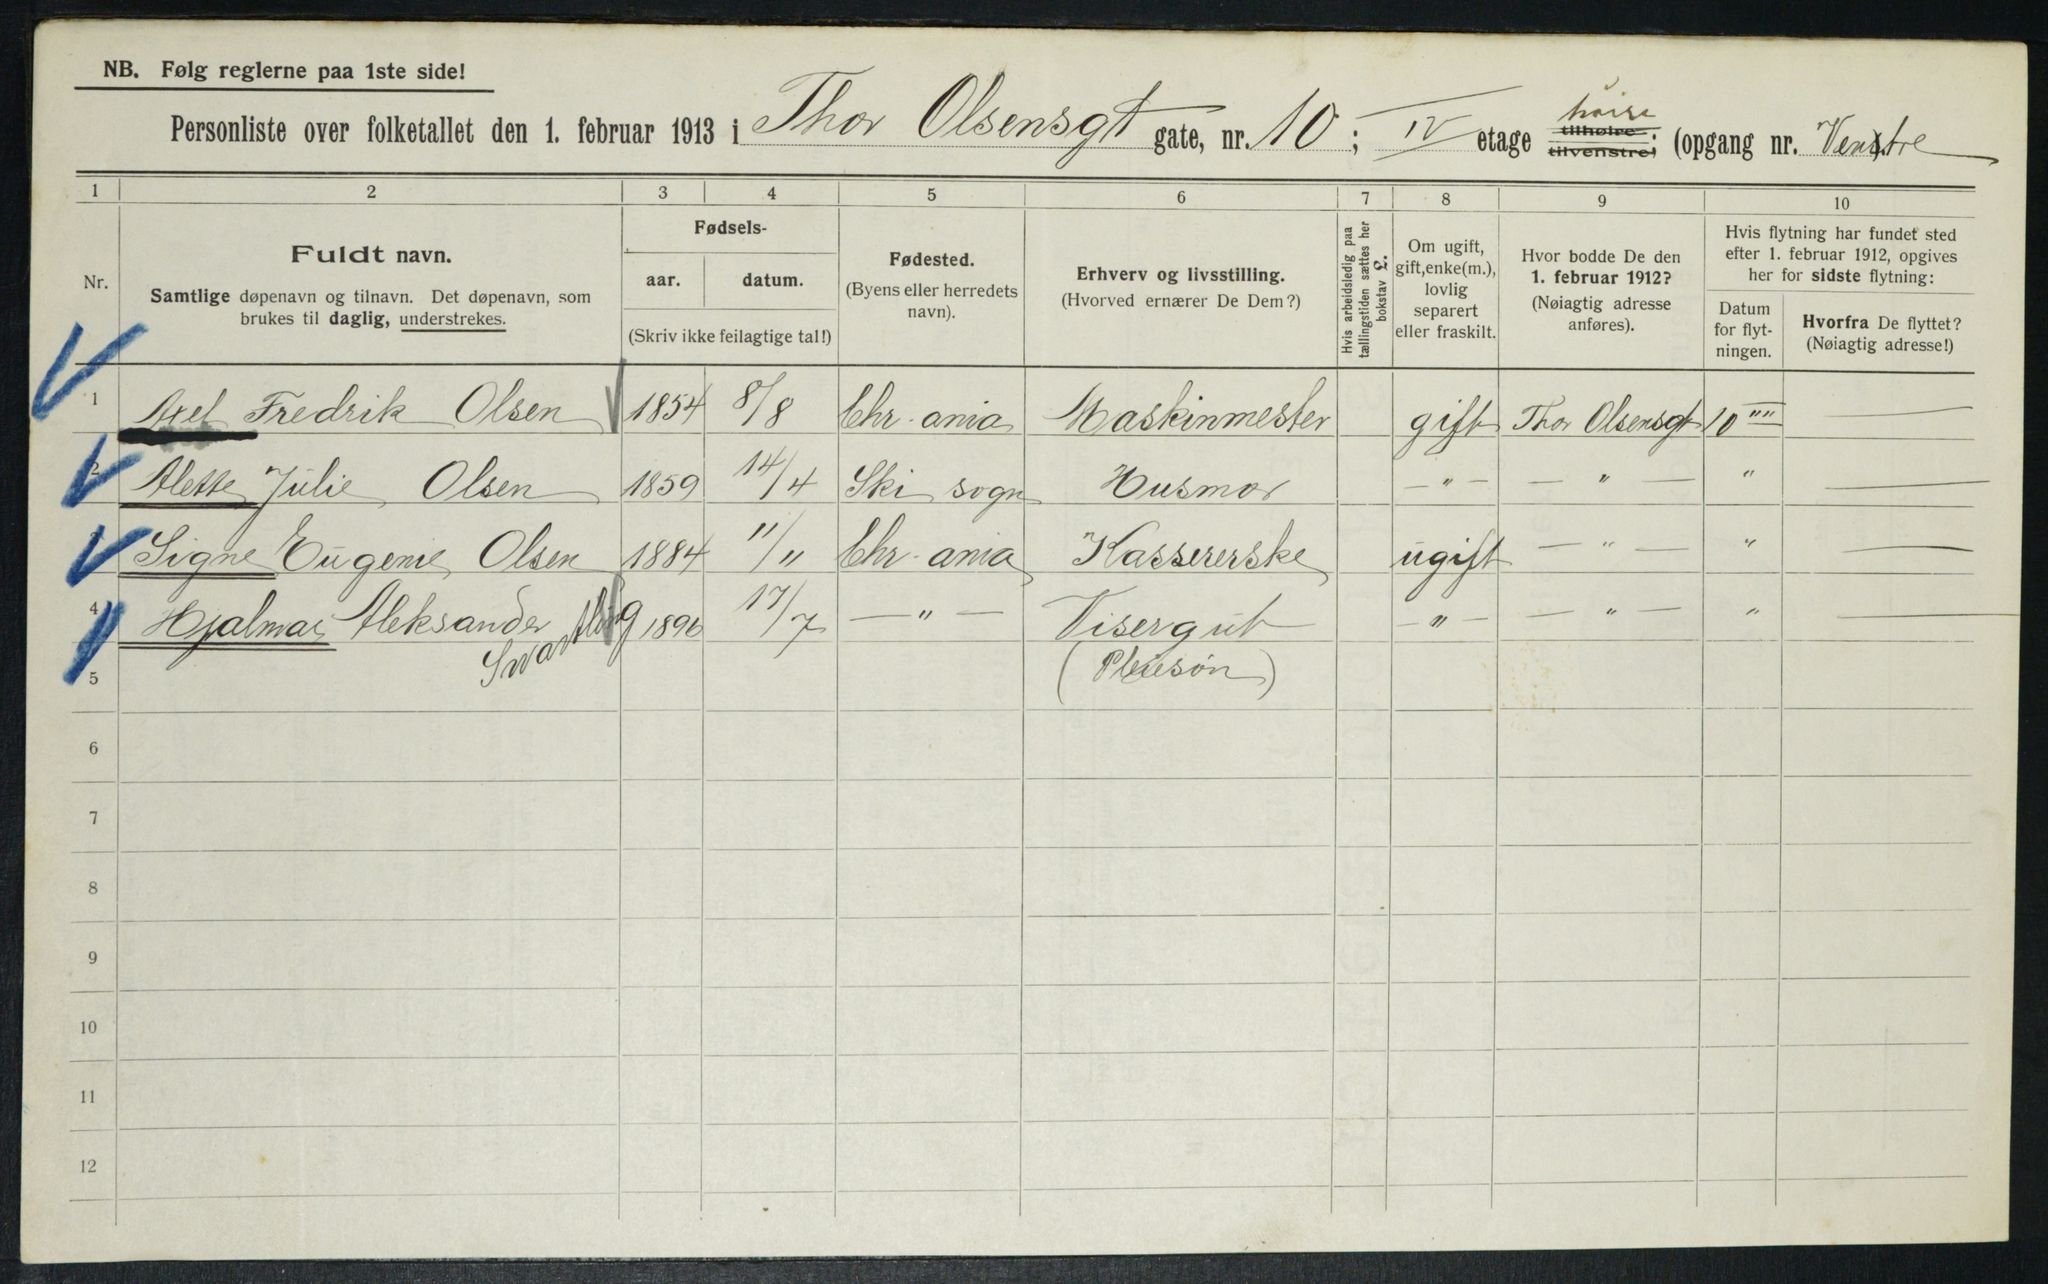 NB. Følg reglerne paa 1ste side!
Personliste over folketallet den 1. februar 1913 i Thor Olsensgt gate, nr. 10; IV etage høire tilhøire tilvenstre; (opgang nr. Venstre
1 2 3 4 5 6 7 8 9 10
Nr.
Fuldt navn.
Samtlige døpenavn og tilnavn. Det døpenavn, som
brukes til daglig, understrekes.
Fødsels-
aar. datum.
(Skriv ikke feilagtige tal!)
Fødested.
(Byens eller herredets
navn).
Erhverv og livsstilling.
(Hvorved ernærer De Dem?)
Hvis arbeidsledig paa
tællingstiden sættes her
bokstav £.
Om ugift,
gift, enke(m.),
lovlig
separert
eller fraskilt.
Hvor bodde De den
1. februar 1912?
(Nøiagtig adresse
anføres).
Hvis flytning har fundet sted
efter 1. februar 1912, opgives
her for sidste flytning:
Datum
for flyt-
ningen.
Hvorfra De flyttet?
(Nøiagtig adresse!)
1 Axel Fredrik Olsen 1854 8/8 Chr.ania Maskinmester gift Thor Olsensgt 10 "" —
2 Alette Julie Olsen 1859 14/4 Ski sogn Husmor — " — — " — " —
3 Signe Eugenie Olsen 1884 11/11 Chr.ania Kassererske ugift — " — " —
4 Hjalmar Aleksander Swartling 1896 17/7 — " — Visergut — " — — " — " —
5 (Pleiesøn)
6
7
8
9
10
11
12